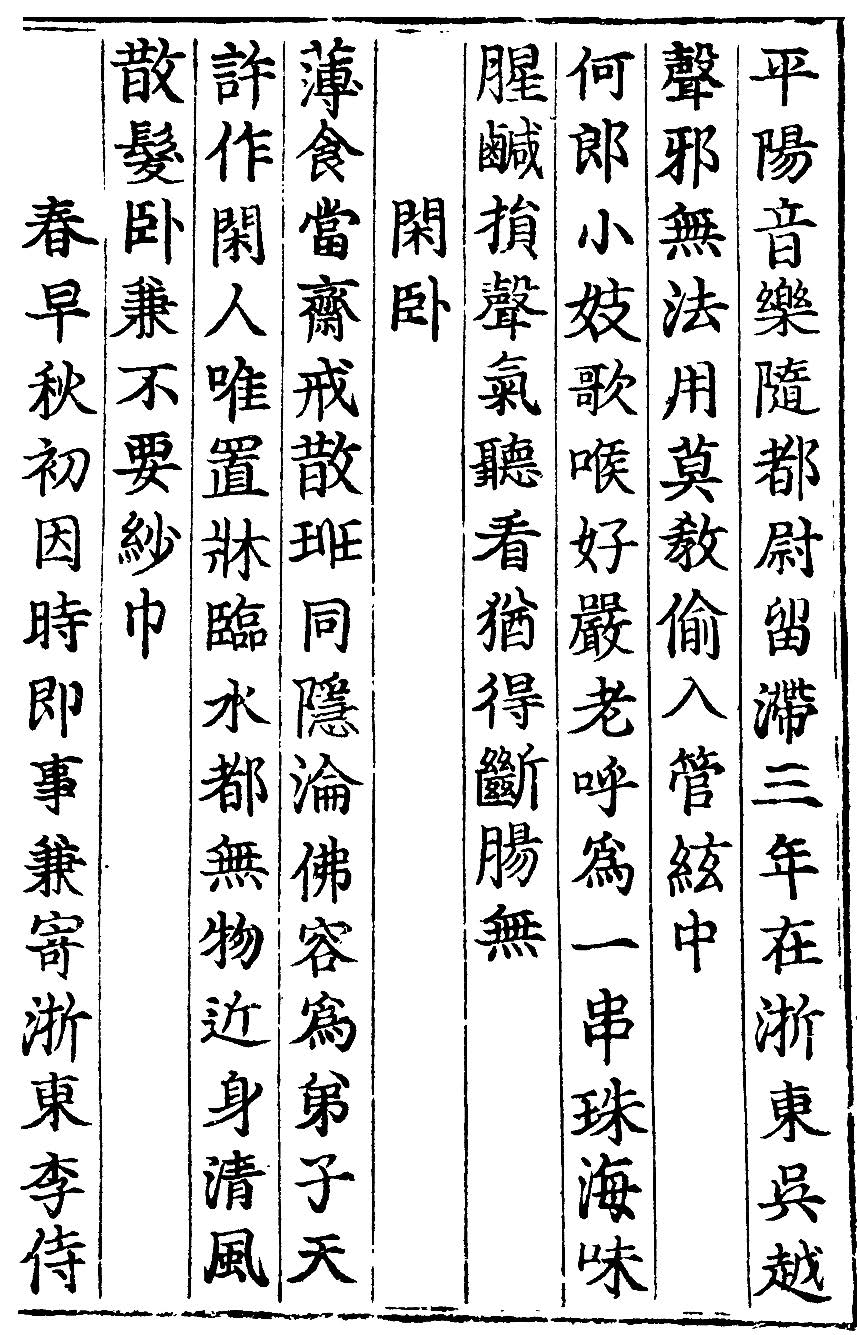 平陽音樂隨都尉留滯三年在浙東吳越
聲邪無法用莫教偷入管絃中
何郎小妓歌喉好嚴老呼爲一串珠海味
腥鹹損聲氣聽看猶得斷腸無
閑卧
薄食當齋戒散班同隱淪佛容爲弟子天
許作閑人唯置牀臨水都無物近身清風
散髮卧兼不要紗巾
春早秋初因時即事兼寄浙東李侍